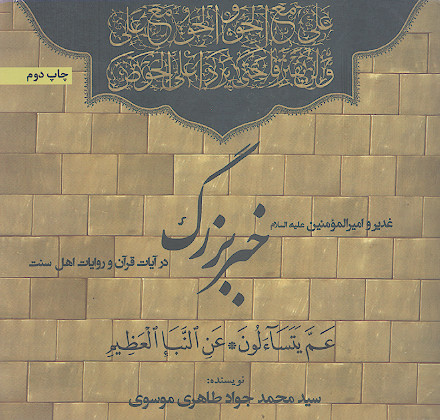 علی مع الحق و الحق مع علی
ولن یفترقا حتی یردا علی الحوض
چاپ دوم
خبر بزرگ
غدیر و امیرالمؤمنین علیه السلام
در آیات قرآن و روایات اهل سنت
عَمَّ يَتَسَآءَلُونَ * عَنِ ٱلنَّبَإِ ٱلْعَظِيمِ
نویسنده:
سید محمد جواد طاهری موسوی